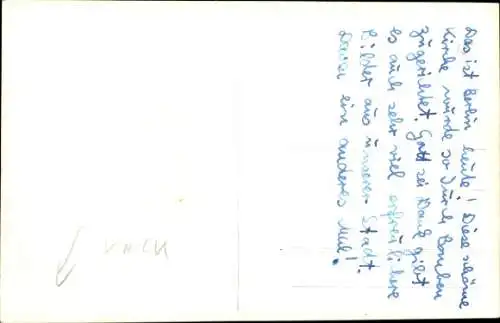 Das ist Berlin heute! Diese schöne
Kirche wurde so durch Bomben
zugerichtet. Gott sei Dank gibt
es auch sehr viel erfreulichere
Bilder aus unserer Stadt.
Davon ein anderes Mal!